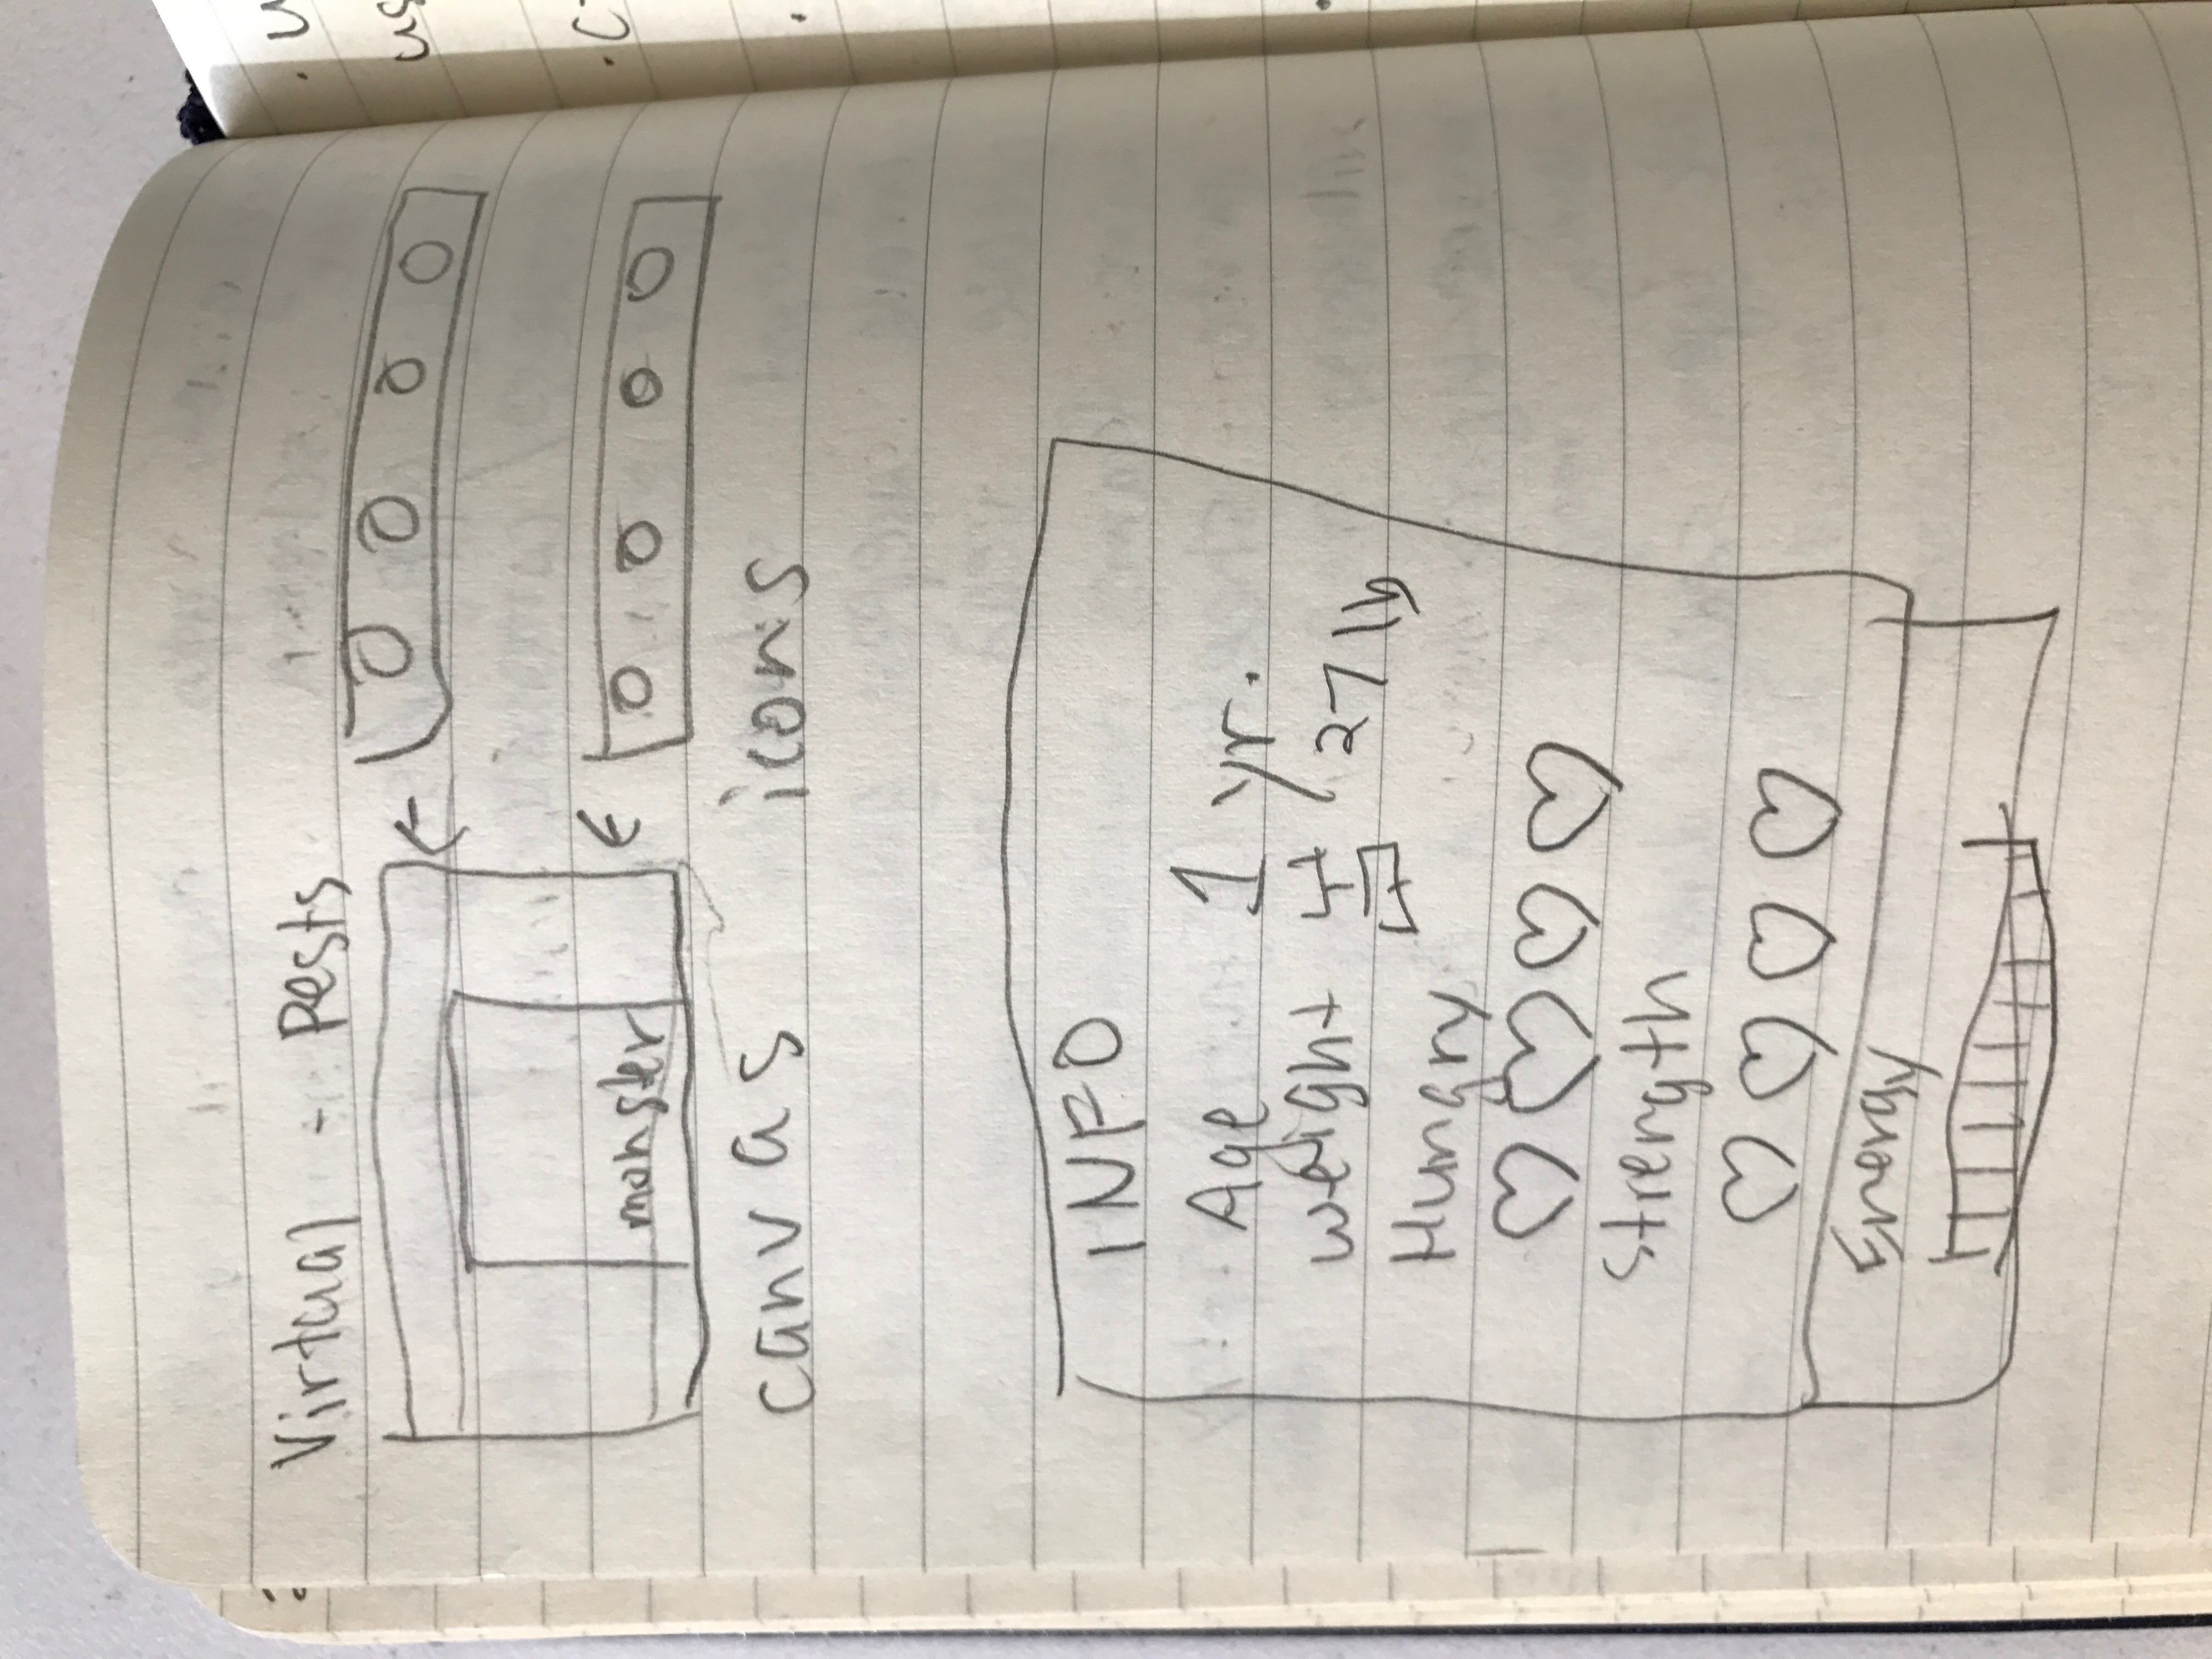 Virtual - Pests
monster
canvas icons
INFO
Age 1 yr.
weight 27 lb
Hungry
Strength
Energy